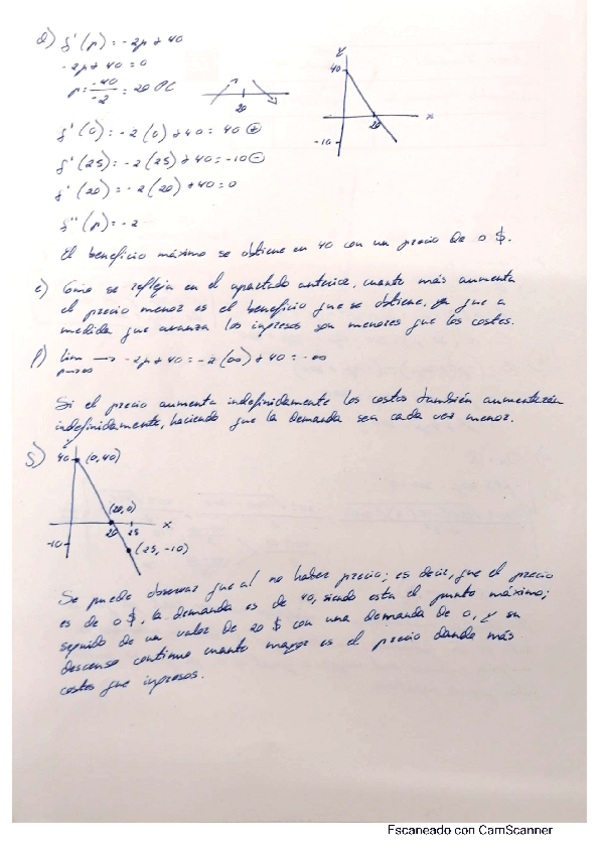 d) f'(p) = -2p + 40
-2p + 40 = 0
p = -40/-2 = 20 PC
20
y
40
20
x
-10
f'(0) = -2(0) + 40 = 40 ⊕
f'(25) = -2(25) + 40 = -10 ⊖
f'(20) = -2(20) + 40 = 0
f''(p) = -2
El beneficio máximo se obtiene en 40 con un precio de 0 $.
e) Como se refleja en el apartado anterior, cuanto más aumenta
el precio menor es el beneficio que se obtiene, ya que a
medida que avanza los ingresos son menores que los costes.
f) lim → -2p + 40 = -2(∞) + 40 = -∞
p→∞
Si el precio aumenta indefinidamente los costes también aumentarán
indefinidamente, haciendo que la demanda sea cada vez menor.
g)
y
40 (0,40)
(20,0)
x
20 25
-10
(25,-10)
Se puede observar que al no haber precio; es decir, que el precio
es de 0 $, la demanda es de 40, siendo esta el punto máximo;
seguido de un valor de 20 $ con una demanda de 0, y su
descenso continuo cuanto mayor es el precio dando más
costes que ingresos.
Escaneado con CamScanner